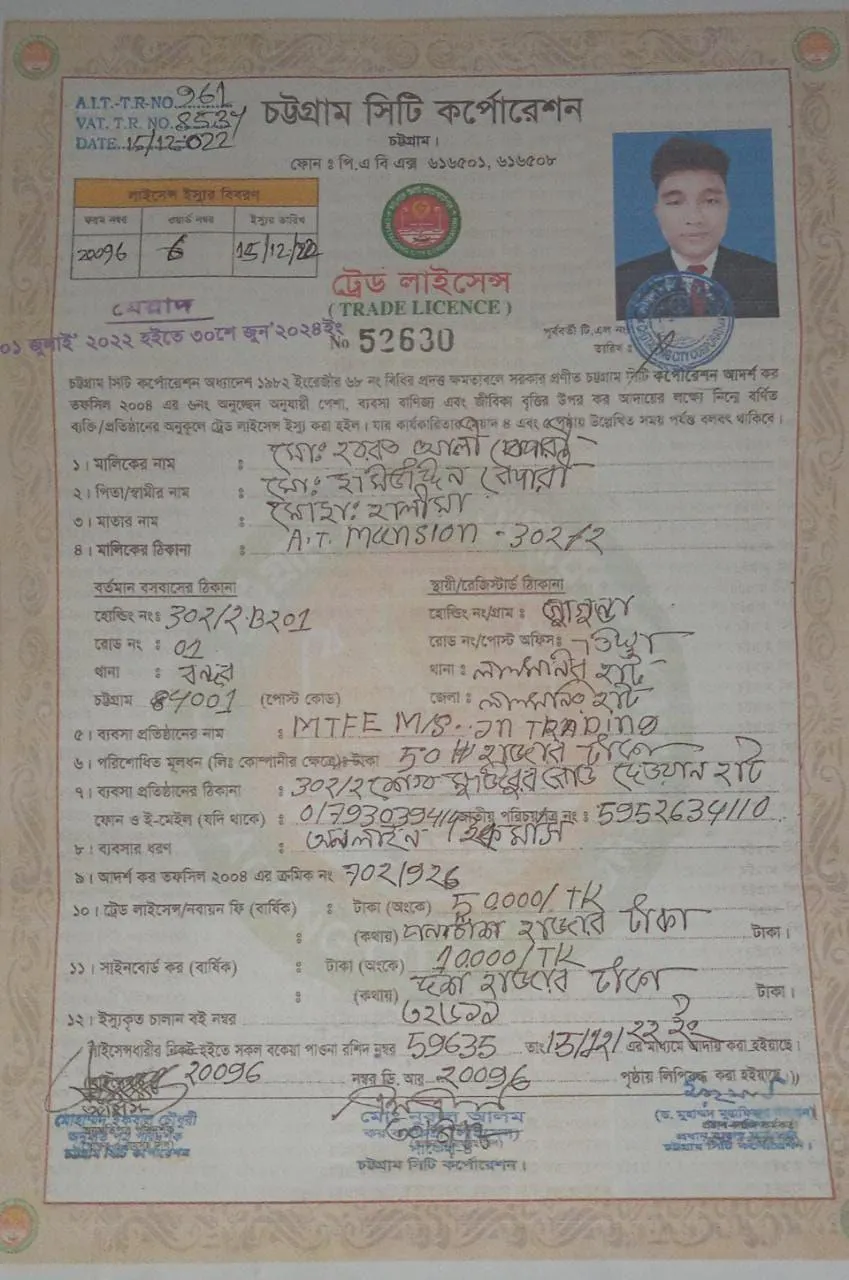 A.I.T.-T.R-NO. 961
VAT. T.R. NO. 8534
DATE. 15/12-022
চট্টগ্রাম সিটি কর্পোরেশন
চট্টগ্রাম।
ফোন ঃ পি.এ বি এক্স ৬১৬৫০১, ৬১৬৫০৮
লাইসেন্স ইস্যুর বিবরণ
ফরম নম্বর ওয়ার্ড নম্বর ইস্যুর তারিখ
20096 6 15/12/22
ট্রেড লাইসেন্স
( TRADE LICENCE )
No 52630
মেয়াদ
০১ জুলাই' ২০২২ হইতে ৩০শে জুন'২০২৪ইং
পূর্ববর্তী টি.এল নং
তারিখ ঃ
চট্টগ্রাম সিটি কর্পোরেশন অধ্যাদেশ ১৯৮২ ইংরেজীর ৬৮ নং বিধির প্রদত্ত ক্ষমতাবলে সরকার প্রণীত চট্টগ্রাম সিটি কর্পোরেশন আদর্শ কর
তফসিল ২০০৪ এর ৬নং অনুচ্ছেদ অনুযায়ী পেশা, ব্যবসা বাণিজ্য এবং জীবিকা বৃত্তির উপর কর আদায়ের লক্ষ্যে নিম্নে বর্ণিত
ব্যক্তি/প্রতিষ্ঠানের অনুকূলে ট্রেড লাইসেন্স ইস্যু করা হইল। যার কার্যকারিতার মেয়াদ ৪ এবং ৫ পৃষ্ঠায় উল্লেখিত সময় পর্যন্ত বলবৎ থাকিবে।
১। মালিকের নাম ঃ মোঃ হযরত আলী বেপারী
২। পিতা/স্বামীর নাম ঃ মোঃ হামিউদ্দিন বেপারী
৩। মাতার নাম ঃ মোছাঃ হালীমা
৪। মালিকের ঠিকানা ঃ A.T. Mansion - 302/2
বর্তমান বসবাসের ঠিকানা
হোল্ডিং নংঃ 302/2.B201
রোড নং ঃ 01
থানা ঃ বন্দর
চট্টগ্রাম 84001 (পোস্ট কোড)
স্থায়ী/রেজিস্টার্ড ঠিকানা
হোল্ডিং নং/গ্রাম ঃ
রোড নং/পোস্ট অফিসঃ
থানা ঃ লালমনির হাট
জেলা ঃ লালমনির হাট
৫। ব্যবসা প্রতিষ্ঠানের নাম ঃ MTFE M/S. on TRADING
৬। পরিশোধিত মূলধন (লিঃ কোম্পানীর ক্ষেত্রে)ঃ টাকা 50 হাজার টাকা
৭। ব্যবসা প্রতিষ্ঠানের ঠিকানা ঃ 302/2 শেখ মুজিবুর রোড দেওয়ান হাট
ফোন ও ই-মেইল (যদি থাকে) ঃ 01793039414 জাতীয় পরিচয়পত্র নং ঃ 5952634110
৮। ব্যবসার ধরণ ঃ অনলাইন
৯। আদর্শ কর তফসিল ২০০৪ এর ক্রমিক নং 702/926
১০। ট্রেড লাইসেন্স/নবায়ন ফি (বার্ষিক) ঃ টাকা (অংকে) 50000/ TK
ঃ (কথায়) পনচাশ হাজার টাকা টাকা।
১১। সাইনবোর্ড কর (বার্ষিক) ঃ টাকা (অংকে) 10000/TK
ঃ (কথায়) দশ হাজার টাকা টাকা।
১২। ইস্যুকৃত চালান বই নম্বর ৩২৬৯৯
লাইসেন্সধারীর নিকট হইতে সকল বকেয়া পাওনা রশিদ নম্বর 59635 তাং 15/12/22 এর মাধ্যমে আদায় করা হইয়াছে।
20096 নম্বর ডি. আর 20096 পৃষ্ঠায় লিপিবদ্ধ করা হইয়াছে।)
মোহাম্মদ ইকবাল চৌধুরী
মোঃ নুরুল আলম
চট্টগ্রাম সিটি কর্পোরেশন
চট্টগ্রাম সিটি কর্পোরেশন।
চট্টগ্রাম সিটি কর্পোরেশন।